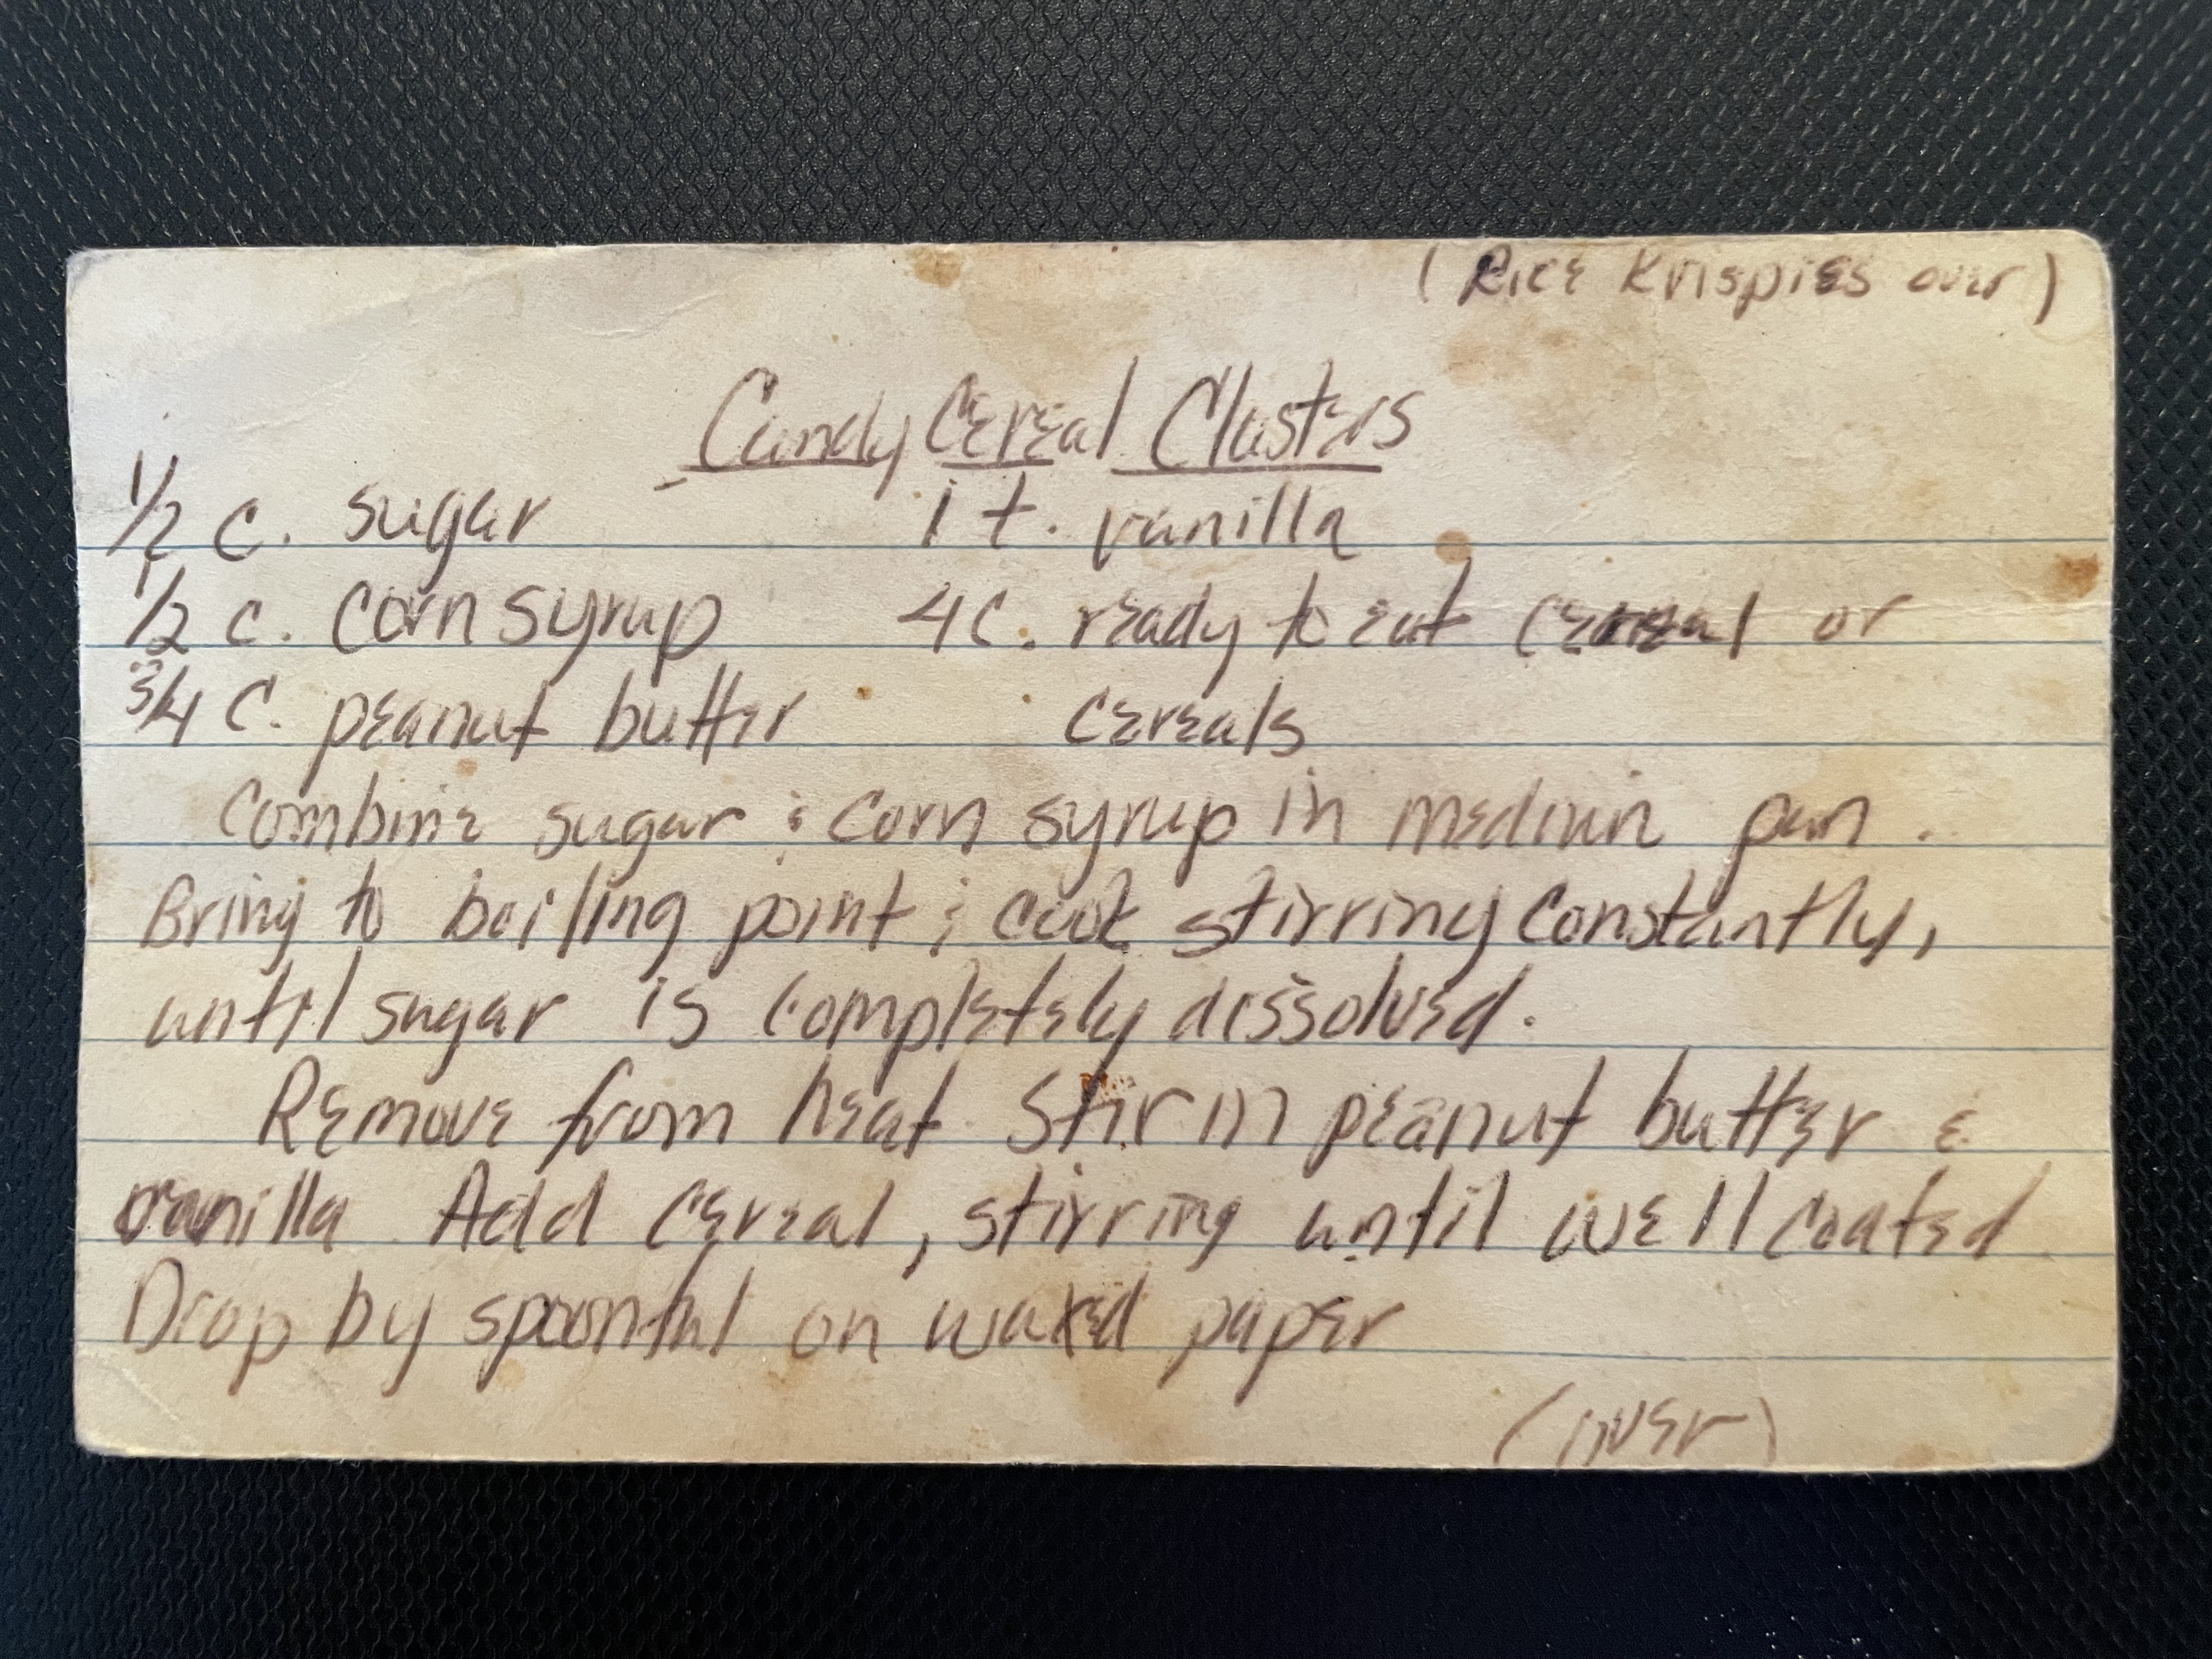 (Rice Krispies over)
Candy Cereal Clusters
1/2 c. sugar 1 t. vanilla
1/2 c. corn syrup 4 c. ready to eat cereal or
3/4 c. peanut butter cereals
Combine sugar & corn syrup in medium pan.
Bring to boiling point & cook stirring constantly,
until sugar is completely dissolved.
Remove from heat. Stir in peanut butter &
vanilla Add cereal, stirring until well coated
Drop by spoonful on waxed paper
(over)